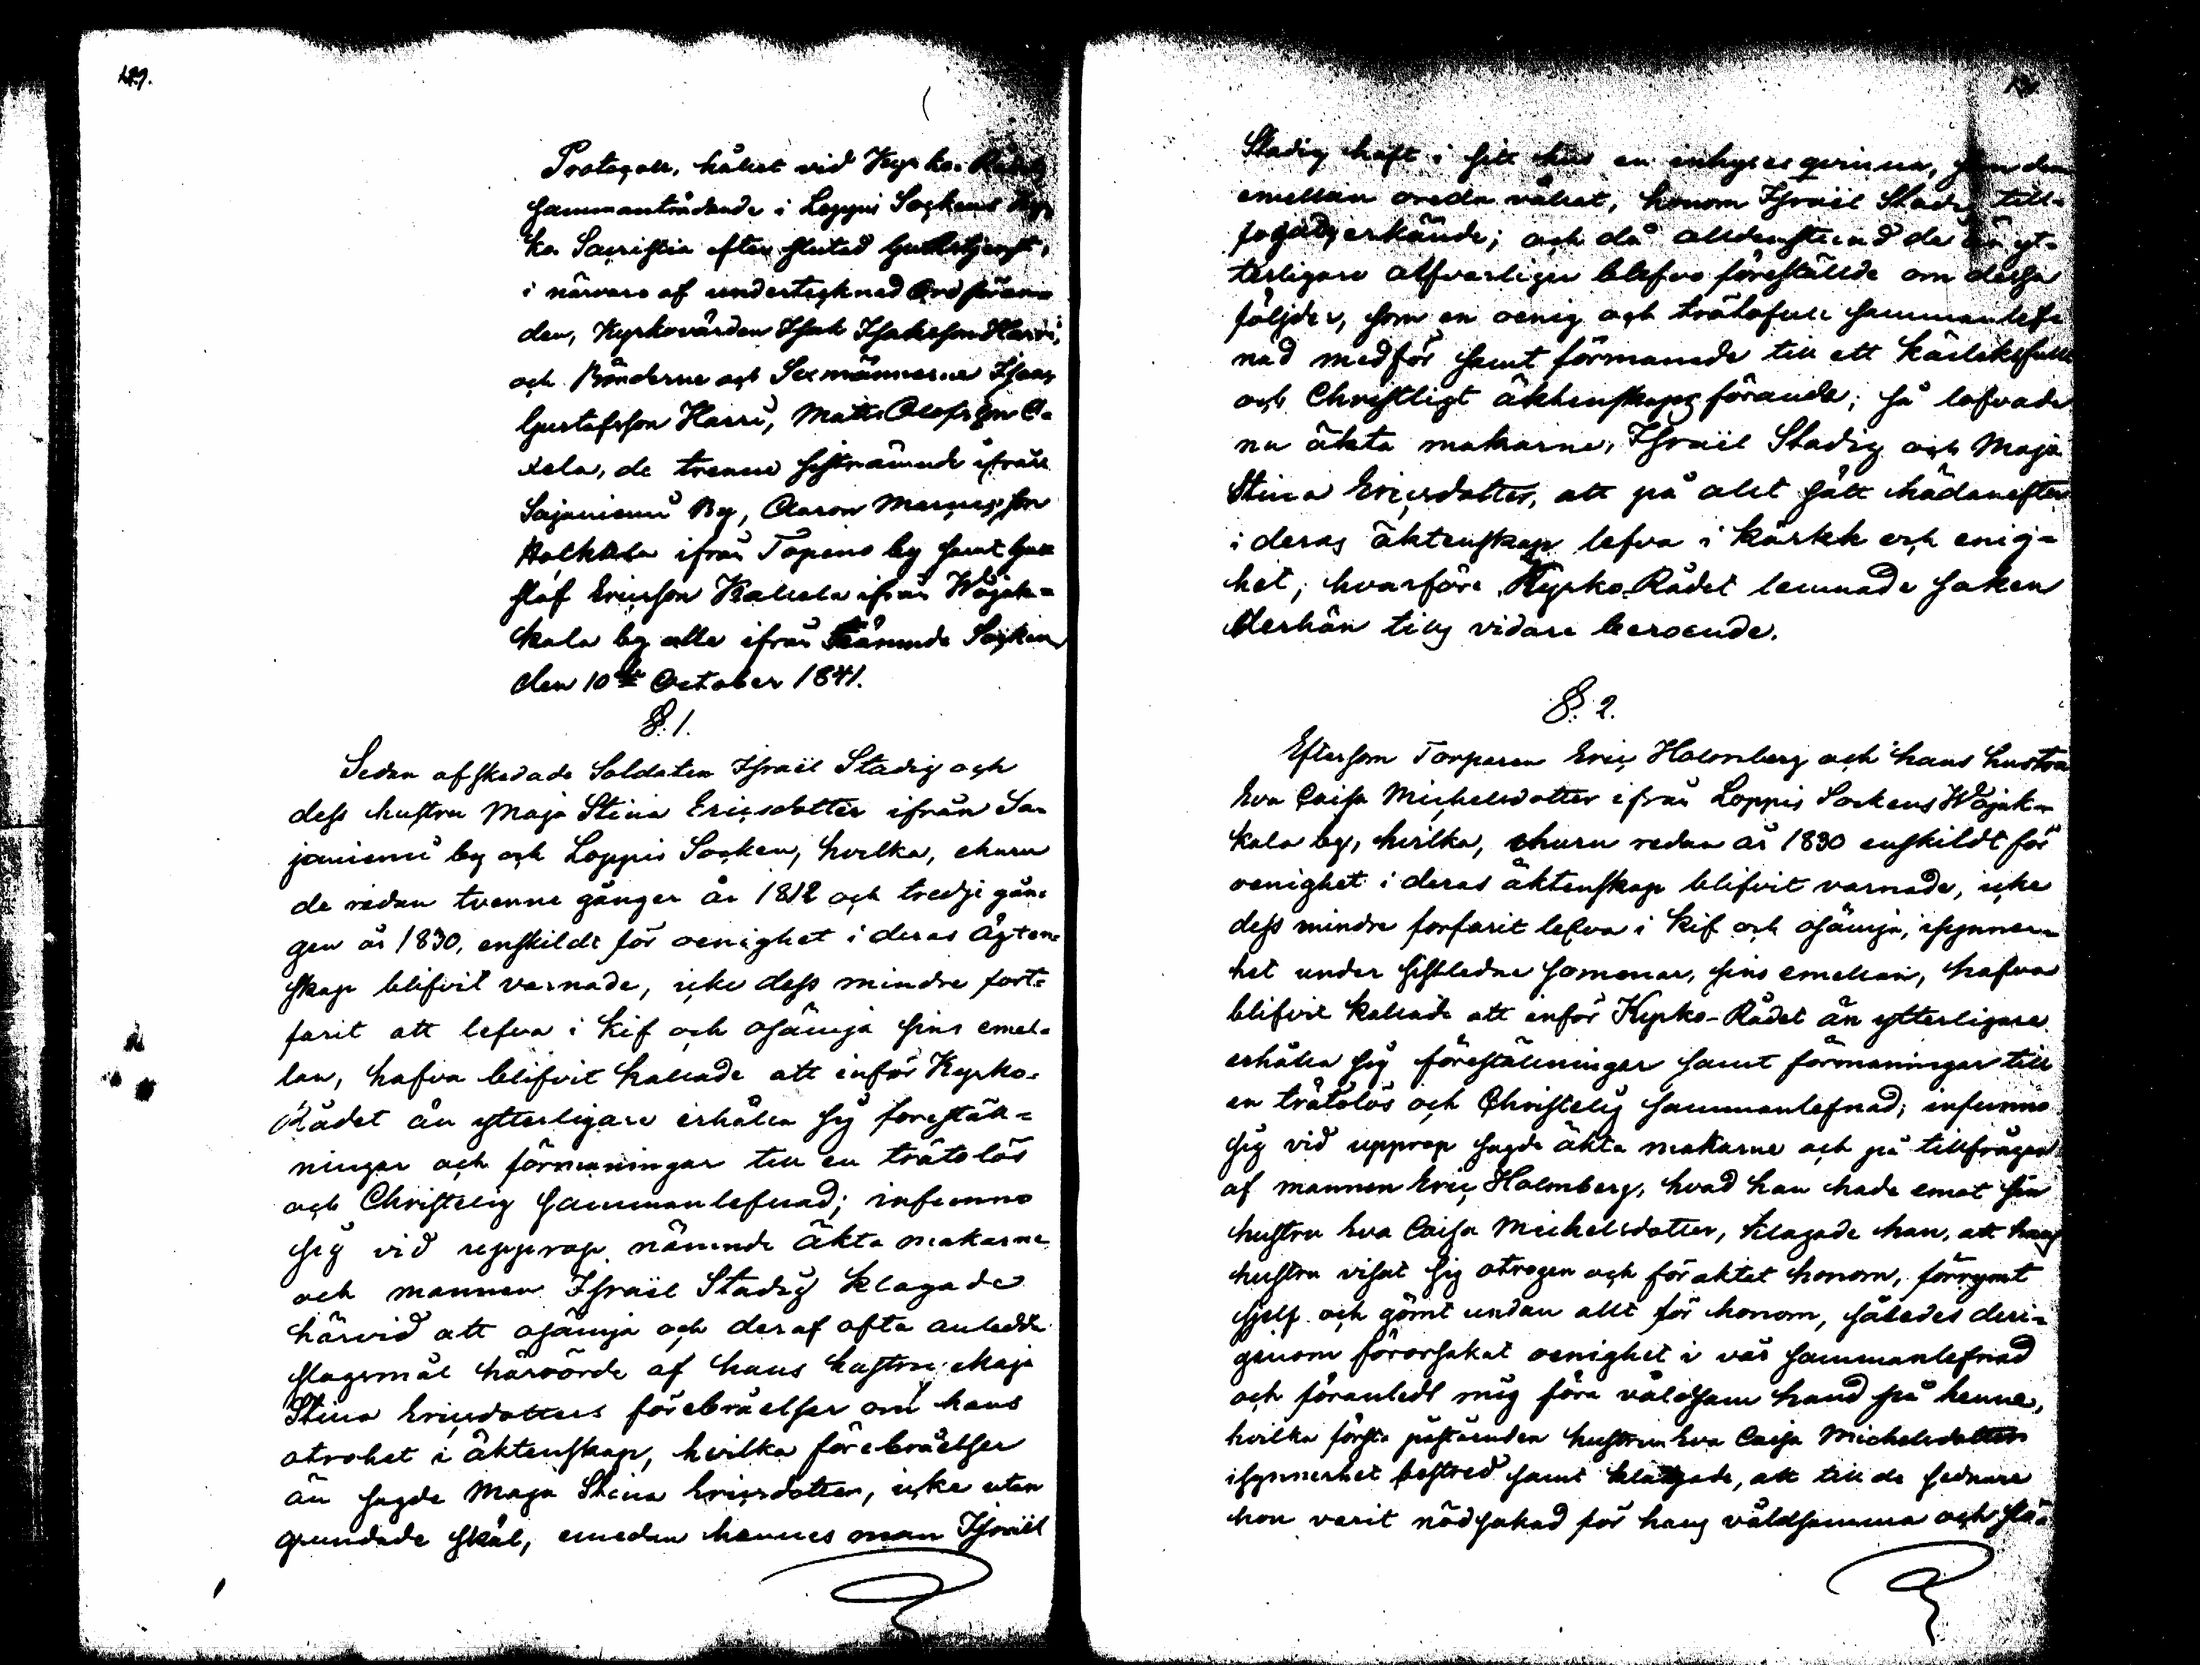 129.
Protocoll, hållit vid Kyrko-Rådets
sammanträdande i Loppis Sockens Kyr
ko Sacristia efter slutad Gudstjenst,
i närvaro af undertecknad Ordföran-
den, Kyrkovärden Isak Isaksson Harri,
och Bönderne och Sexmännerne Isaac
Gustafsson Harri, Matts Olofsson O-
xela, de trenne sistnämnde ifrån
Sajaniemi By, Aaron Marcusson
ifrån Topeno by samt Gu
staf Ericsson Kallela ifrån Wojak-
kala by alle ifrån nämnde Socken
den 10de October 1841.
§. 1.
Sedan afskedade Soldaten Israël Stadig och
dess hustru Maja Stina Ericsdotter ifrån Sa-
janiemi by och Loppis Socken, hvilka, ehuru
de redan tvenne gånger år 1812 och tredje gån-
gen år 1830, enskildt för oenighet i deras Ägten-
skap blifvit varnade, icke dess mindre fort-
farit att lefva i kif och osämja sins emel-
lan, hafva blifvit kallade att inför Kyrko-
Rådet än ytterligare erhålla sig förestäl-
ningar och förmaningar till en trätolös
och Christelig sammanlefnad; infunno
sig vid upprop nämnde äkta makarne
och mannen Israël Stadig klagade
härvid att osämja och deraf ofta anledde
slagsmål härrörde af hans hustru Maja
Stina Ericsdotters förebråelser om hans
otrohet i äktenskap, hvilka förebråelser
än sagde Maja Stina Ericsdotter, icke utan
grundade skäl, emedan hennes man Israël
Stadig haft i sitt hus en inhyses qvinna, som dem
emellan oreda vållat, honom Israël Stadig till-
fogat, erkände; och då alldenstund de än yt-
terligare alfvarligen blefvo föreställde om dessa
följder, som en oenig och trätofull sammanlef-
nad medför samt förmanade till ett kärleksfullt
och Christligt äktenskaps förande; så lofvade
nu äkta makarne, Israël Stadig och Maja
Stina Ericsdotter, att på allt sätt hädanefter
i deras äktenskap lefva i kärlek och enig-
het; hvarföre Kyrko-Rådet lemnade saken
derhän tills vidare beroende.
§. 2.
Eftersom Torparen Eric Holmberg och hans hustru
Eva Caisa Michelsdotter ifrån Loppis Sockens Wojak-
kala by, hvilka, ehuru redan år 1830 enskildt för
oenighet i deras äktenskap blifvit varnade, icke
dess mindre forfarit lefva i kif och osämja, isynner-
het under sistledne sommar, sins emellan, hafva
blifvit kallade att inför Kyrko-Rådet än ytterligare
erhålla sig föreställningar samt förmaningar till
en trätolös och Christelig sammanlefnad; infunno
sig vid upprop sagde äkta makarne och på tillfrågan
af mannen Eric Holmberg, hvad han hade emot sin
hustru Eva Caisa Michelsdotter, klagade han, att hans
hustru visat sig otrogen och föraktat honom, förrymt
sjelf och gömt undan allt för honom, således deri-
genom förorsakat oenighet i vår sammanlefnad
och föranledt mig föra våldsam hand på henne,
hvilka första påståenden hustrun Eva Caisa Michelsdotter
isynnerhet bestred samt klagade, att till de sednare
hon varit nödsakad för hans våldsamma och